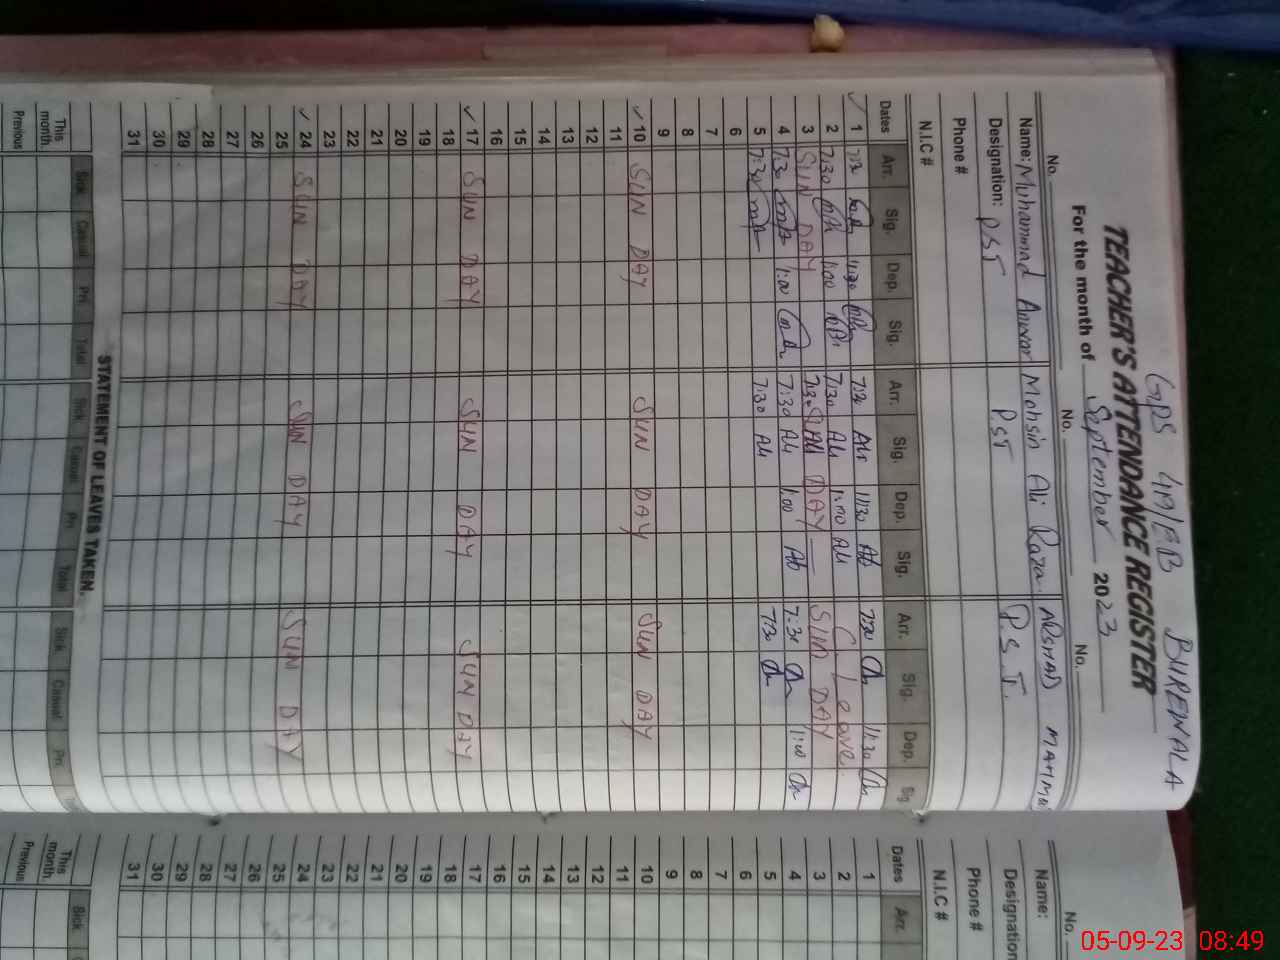 GPS 49/EB BUREWALA
TEACHER'S ATTENDANCE REGISTER
For the month of September 2023
No. No. No.
Name: Muhammad Anwar Mohsin Ali Raza ARSHAD MAHM
Designation: PST PST P.S.T.
Phone #
N.I.C #
Dates Arr. Sig. Dep. Sig. Arr. Sig. Dep. Sig. Arr. Sig. Dep. Sig
1 7:30 11:30 7:30 Ali 11:30 7:30 11:30
2 7:30 1:00 7:30 Ali 1:00 Ali C. Leave
3 SUN DAY 7:30 SUN DAY SUN DAY
4 7:30 1:00 7:30 Ali 1:00 7:30 1:00
5 7:30 7:30 Ali 7:30
6
7
8
9
10 SUN DAY SUN DAY SUN DAY
11
12
13
14
15
16
17 SUN DAY SUN DAY SUN DAY
18
19
20
21
22
23
24 SUN DAY SUN DAY SUN DAY
25
26
27
28
29
30
31
STATEMENT OF LEAVES TAKEN.
Sick Casual Pri Total Sick Casual Pri Total Sick Casual Pri
This month.
Previous
No.
Name:
Designation
Phone #
N.I.C #
Dates Arr.
1
2
3
4
5
6
7
8
9
10
11
12
13
14
15
16
17
18
19
20
21
22
23
24
25
26
27
28
29
30
31
Sick
This month.
Previous
05-09-23 08:49